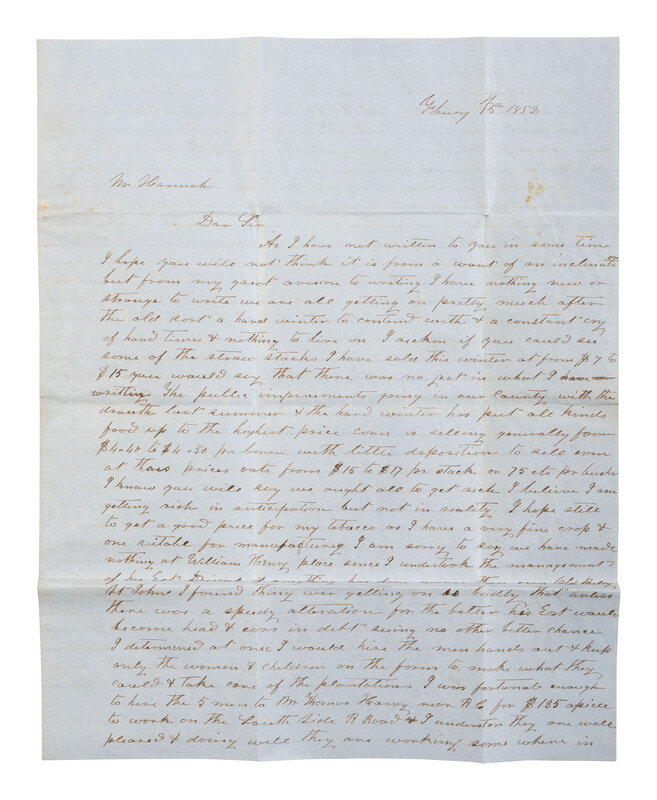 Febuary 15th 1852
Mr Hannah.
Dear Sir
As I have not written to you in some time
I hope you will not think it is from a want of an inclination
but from my great avirson to writing I have nothing new or
strange to write we are all getting on pretty much after
the old sort a hard winter to contend with & a constant cry
of hard times & nothing to live on I reckon if you could see
some of the straw stacks I have sold this winter at from $7 to
$15 you would say that there was no jest in what I have
writting The public improvments going in our County with the
drouth last summer & the hard winter has put all kinds
food up to the highest price corn is selling generally from
$4"40 to $4"50 pr barrel with little disposition to sell even
at thous prices oats from $15 to $17 pr stack or 75 cts pr bushel
I know you will say we ought all to get rich I believe I am
getting rich in anticipation but not in reality I hope still
to get a good price for my tobacco as I have a very fine crop &
one sutable for manufacturing I am sorry to say we have made
nothing at William Henry place since I undertook the management
of his Est
At Johns I found things wer getting on so badly that unless
there was a speedy alteration for the better his Est would
become head & ears in debt seing no other better chance
I determined at once I would hire the men hands out & keep
only the women & children on the farm to make what they
could & take care of the plantation I was fortunate enough
to hire the 5 men to Mr Thomas Harvy near R C for $135 apiece
to work on the South Side R Road & I understan they are well
pleased & doing well they are working some where in